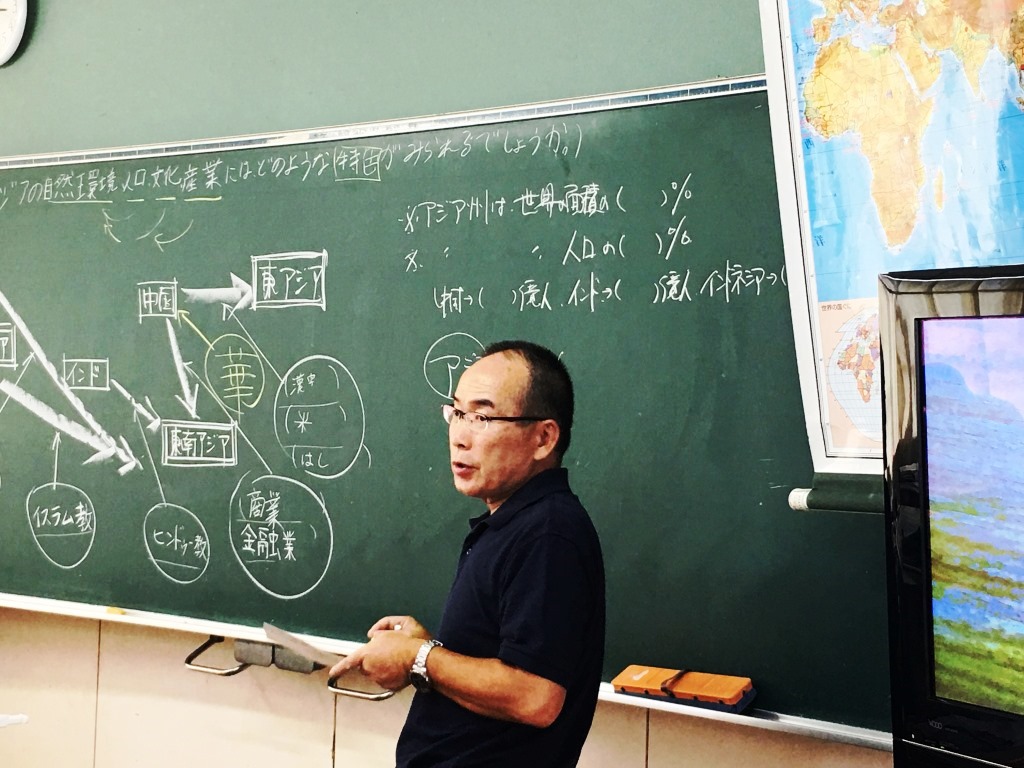 ジアの自然環境、人口、文化、産業にはどのような(特色)がみられるでしょうか。)
※アジア州は、世界の面積の(　　)%
※ 〃 〃 人口の(　　)%
(　　)億人、インド→(　　)億人、インドネシア→(
中国
東アジア
華
インド
東南アジア
(漢字　)
(米　)
(はし　)
イスラム教
ヒンドゥー教
(商業　)
金融業
アジ
世界の国ぐに